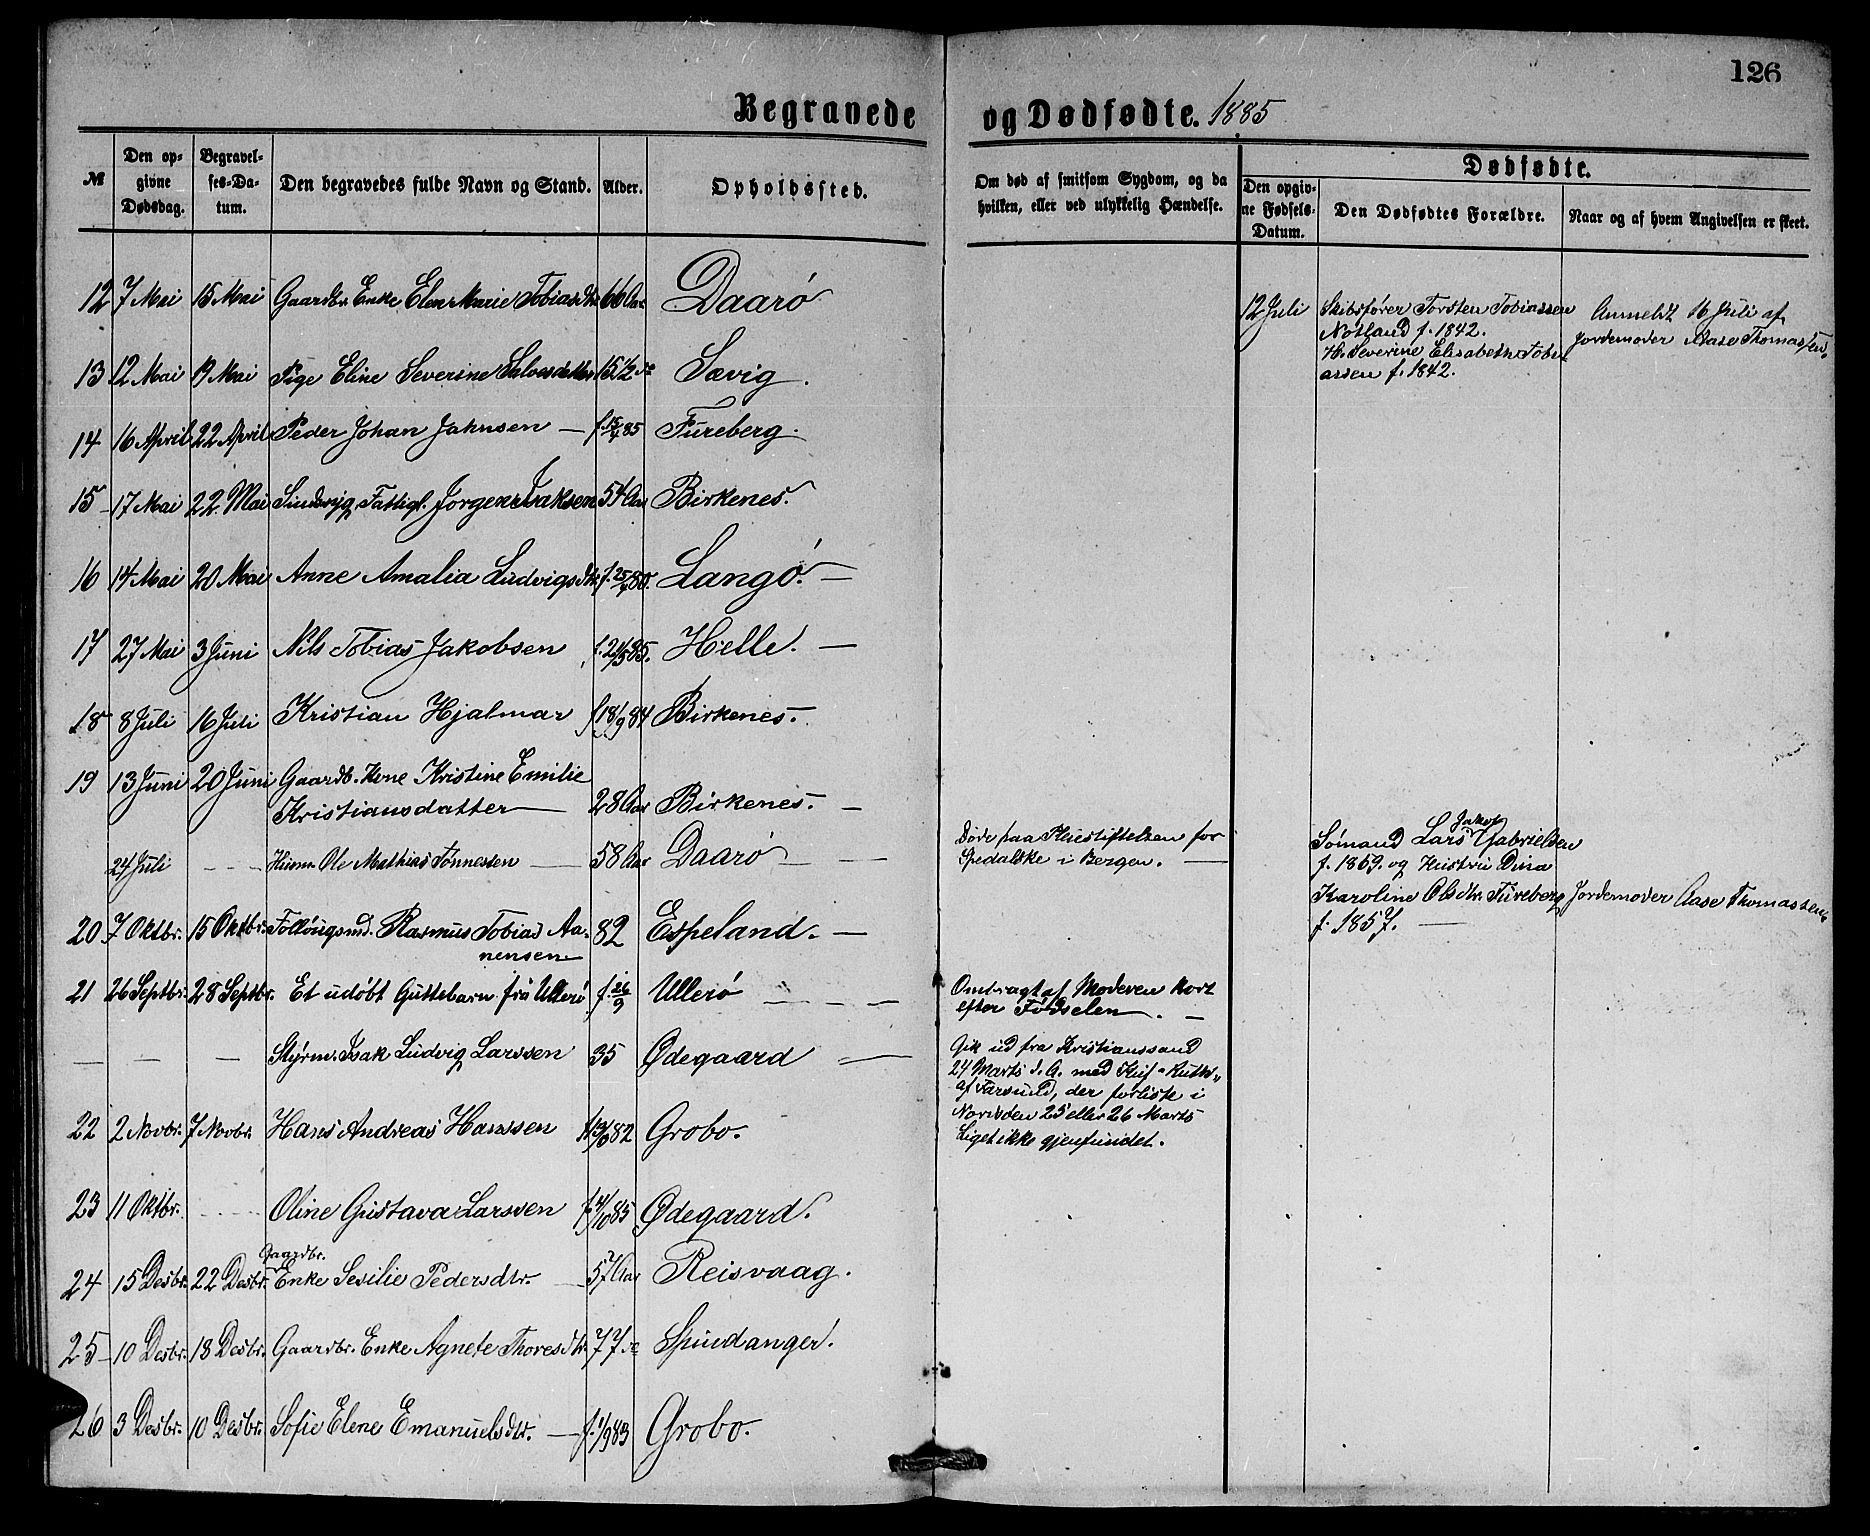 126
Begravede og Dødfødte. 1885
№
Den opgivne Dødsdag.
Begravelses-Datum.
Den begravedes fulde Navn og Stand.
Alder.
Opholdssted.
Om død af smitsom Sygdom, og da hvilken, eller ved ulykkelig Hændelse.
Dødfødte.
Den opgivne Fødsels-Datum.
Den Dødfødtes Forældre.
Naar og af hvem Angivelsen er skeet.
12 7 Mai 15 Mai Gaardbr. Enke Elen Marie Tobiasdtr 66 Aar Daarø
12 Juli Skibsfører Torsten Tobiassen Anmeldt 16 Juli af
Nøtland f. 1842. Jordemoder Aase Thomassen.
H. Severine Elisabeth Tobi
assen f. 1842.
13 12 Mai 19 Mai Pige Eline Severine Salvesdatter 15 1/2 do Sævig.
14 16 April 22 April Peder Johan Jahnsen — f. 15/4 85 Fureberg.
15 17 Mai 22 Mai Sindsvg. Fattigl. Jørgen Isaksen 54 Aar Birkenes.
16 14 Mai 20 Mai Anne Amalia Ludvigsdtr. f. 25/4 80. Langø. —
17 27 Mai 3 Juni Nils Tobias Jakobsen f. 21/5 85. Helle. —
18 8 Juli 16 Juli Kristian Hjalmar f 18/9 84 Birkenes.
19 13 Juni 20 Juni Gaardb. Kone Kristine Emilie
Kristiansdatter — 28 Aar Birkenes. —
24 Juli - - - Husm. Ole Mathias Tønnessen — 58 Aar Daarø — —
Døde paa Pleiestiftelsen for
Spedalske i Bergen. —
Sømand Lars Jakob Gabrielsen
f. 1859. og Hustru Dina
Karoline Olsdtr. Fureberg Jordemoder Aase Thomassen
f. 1857. —
20 7 Oktbr. 15 Oktbr. Føllougsmd. Rasmus Tobias Aa-
nensen 82 Espeland. —
21 26 Septbr. 28 Septbr. Et udøbt Guttebarn fra Ullerø f. 26/9 Ullerø — — —
Ombragt af Moderen kort
efter Fødselen. —
— — — Styrm. Isak Ludvig Larssen 35 Ødegaard —
Gik ud fra Kristianssand
24 Marts d. A. med Kuf "Ruth"
af Farsund, der forliste i
Nordsøen 25 eller 26 Marts
Liget ikke gjenfundet.
22 2 Novbr. 7 Novbr. Hans Andreas Hanssen 82 Grobo.
23 11 Oktbr. - - - - Oline Gustava Larssen f 4/10 85 Ødegaard.
24 15 Desbr. 22 Desbr. Gaardbr. Enke Sesilie Pedersdtr. — 57 Aar Reisvaag.
25 10 Desbr. 18 Desbr. Gaardbr. Enke Agnete Thoresdtr. 77 do Spindanger.
26 3 Desbr. 10 Desbr. Sofie Elene Emanuelsdtr. — f. 1/9 83 Grobo.